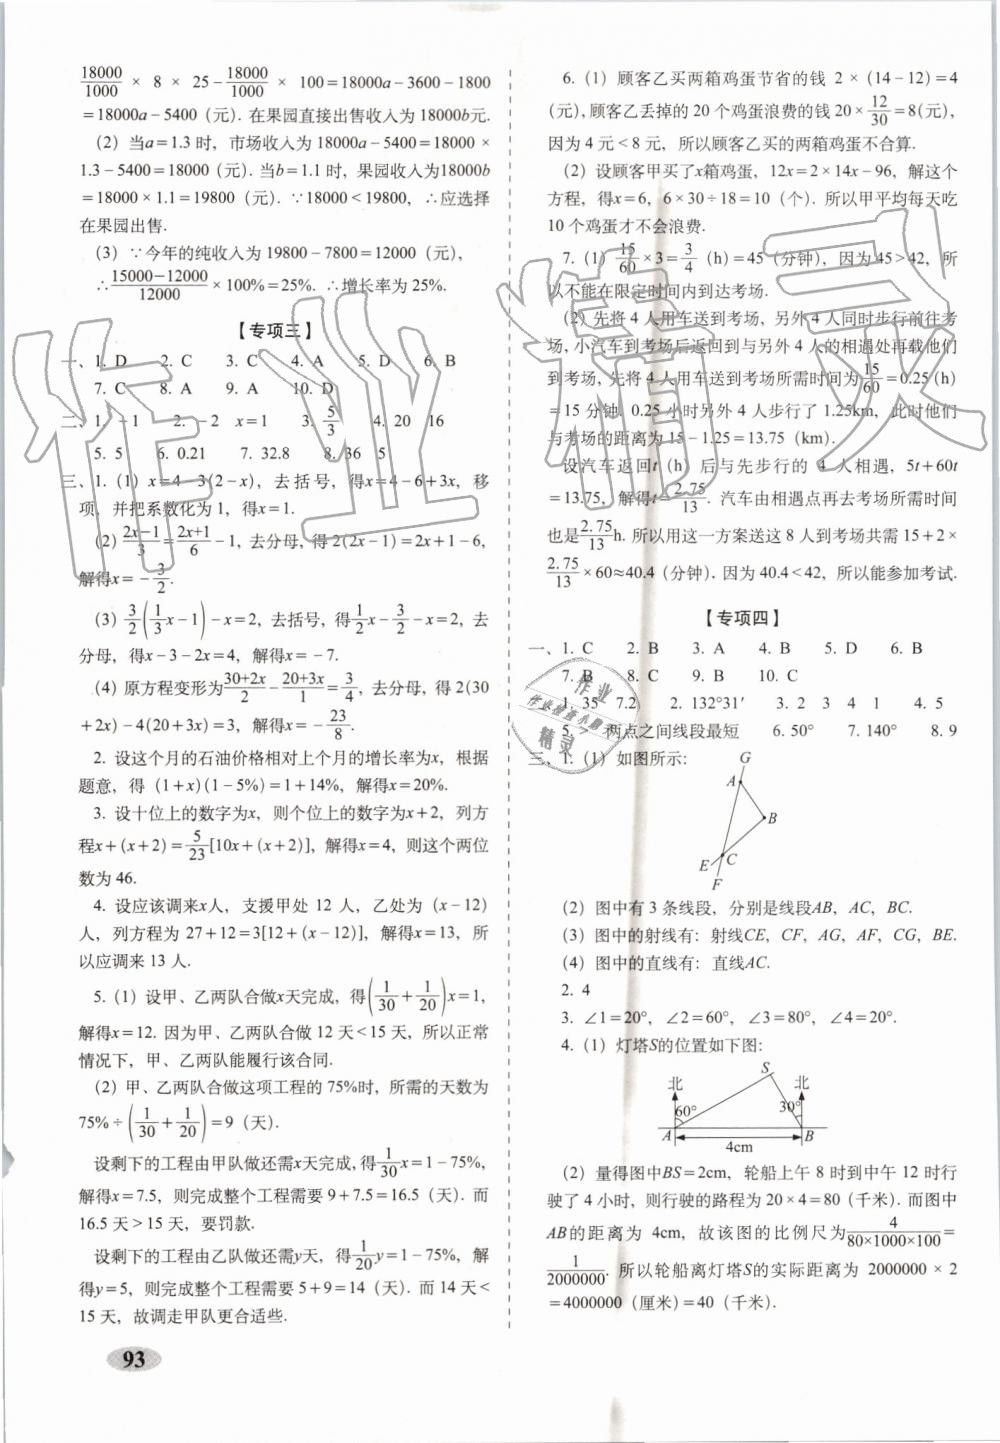 18000/1000 × 8 × 25 − 18000/1000 × 100=18000a−3600−1800
=18000a−5400（元）. 在果园直接出售收入为 18000b元.
（2）当a=1.3 时，市场收入为 18000a−5400=18000 ×
1.3−5400=18000（元）. 当b=1.1 时，果园收入为18000b
=18000 × 1.1=19800（元）. ∵18000<19800，∴应选择
在果园出售.
（3）∵今年的纯收入为 19800−7800=12000（元），
∴(15000−12000)/12000 × 100%=25%. ∴增长率为 25%.
【专项三】
一、1. D 2. C 3. C 4. A 5. D 6. B
7. C 8. A 9. A 10. D
二、1. −1 2. −2 x=1 3. 5/3 4. 20 16
5. 5 6. 0.21 7. 32.8 8. 36 5
三、1.（1）x=4−3(2−x)，去括号，得x=4−6+3x，移
项，并把系数化为 1，得x=1.
（2）(2x−1)/3=(2x+1)/6−1，去分母，得 2(2x−1)=2x+1−6，
解得x=−3/2.
（3）3/2(1/3x−1)−x=2，去括号，得1/2x−3/2−x=2，去
分母，得x−3−2x=4，解得x=−7.
（4）原方程变形为(30+2x)/2−(20+3x)/1=3/4，去分母，得 2(30
+2x)−4(20+3x)=3，解得x=−23/8.
2. 设这个月的石油价格相对上个月的增长率为x，根据
题意，得（1+x)(1−5%)=1+14%，解得x=20%.
3. 设十位上的数字为x，则个位上的数字为x+2，列方
程x+(x+2)=5/23[10x+(x+2)]，解得x=4，则这个两位
数为 46.
4. 设应该调来x人，支援甲处 12 人，乙处为（x−12）
人，列方程为 27+12=3[12+(x−12)]，解得x=13，所
以应调来 13 人.
5.（1）设甲、乙两队合做x天完成，得(1/30+1/20)x=1，
解得x=12. 因为甲、乙两队合做 12 天<15 天，所以正常
情况下，甲、乙两队能履行该合同.
（2）甲、乙两队合做这项工程的 75%时，所需的天数为
75%÷(1/30+1/20)=9（天）.
设剩下的工程由甲队做还需x天完成，得1/30x=1−75%，
解得x=7.5，则完成整个工程需要 9+7.5=16.5（天）. 而
16.5 天>15 天，要罚款.
设剩下的工程由乙队做还需y天，得1/20y=1−75%，解
得y=5，则完成整个工程需要 5+9=14（天）. 而 14 天<
15 天，故调走甲队更合适些.
93
6.（1）顾客乙买两箱鸡蛋节省的钱 2 ×（14−12）=4
（元），顾客乙丢掉的 20 个鸡蛋浪费的钱 20×12/30=8（元），
因为 4 元<8 元，所以顾客乙买的两箱鸡蛋不合算.
（2）设顾客甲买了x箱鸡蛋，12x=2×14x−96，解这个
方程，得x=6，6×30÷18=10（个）. 所以甲平均每天吃
10 个鸡蛋才不会浪费.
7.（1）15/60×3=3/4（h）=45（分钟），因为45>42，所
以不能在限定时间内到达考场.
（2）先将 4 人用车送到考场，另外 4 人同时步行前往考
场，小汽车到考场后返回到与另外 4 人的相遇处再载他们
到考场，先将 4 人用车送到考场所需时间为15/60=0.25（h）
=15 分钟. 0.25 小时另外 4 人步行了 1.25km，此时他们
与考场的距离为 15−1.25=13.75（km）.
设汽车返回t（h）后与先步行的 4 人相遇，5t+60t
=13.75，解得t=2.75/13. 汽车由相遇点再去考场所需时间
也是2.75/13h. 所以用这一方案送这 8 人到考场共需 15+2×
2.75/13×60≈40.4（分钟）. 因为 40.4<42，所以能参加考试.
【专项四】
一、1. C 2. B 3. A 4. B 5. D 6. B
7. B 8. C 9. B 10. C
1. 35 7.2 2. 132°31′ 3. 2 3 4 1 4. 5
5. > 两点之间线段最短 6. 50° 7. 140° 8. 9
三、1.（1）如图所示：
G
A
B
E C
F
（2）图中有 3 条线段，分别是线段AB，AC，BC.
（3）图中的射线有：射线CE，CF，AG，AF，CG，BE.
（4）图中的直线有：直线AC.
2. 4
3. ∠1=20°，∠2=60°，∠3=80°，∠4=20°.
4.（1）灯塔S的位置如下图：
S
北 北
60° 30°
A B
4cm
（2）量得图中BS=2cm，轮船上午 8 时到中午 12 时行
驶了 4 小时，则行驶的路程为 20×4=80（千米）. 而图中
AB的距离为 4cm，故该图的比例尺为4/(80×1000×100)=
1/2000000. 所以轮船离灯塔S的实际距离为 2000000 × 2
=4000000（厘米）=40（千米）.
作业精灵
作业
精灵